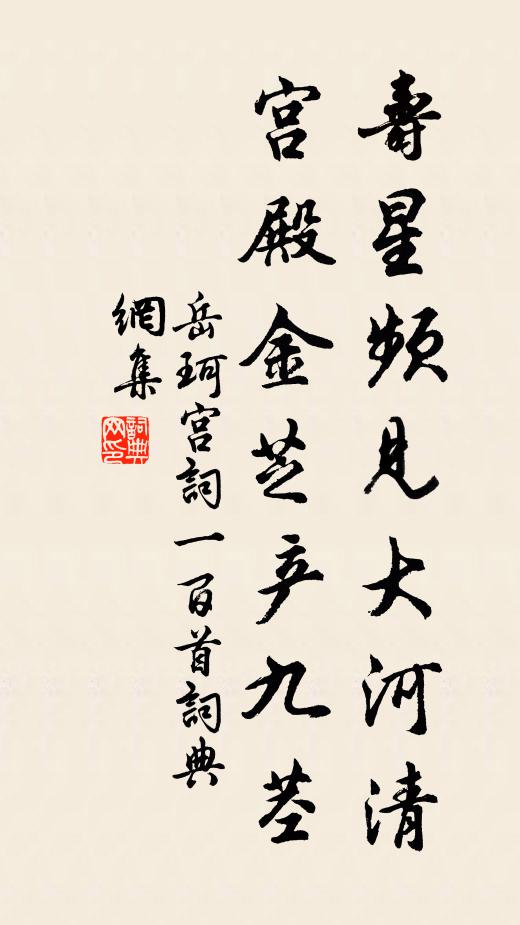 壽星頻見大河清
宮殿金芝产九莖
岳珂宮詞一百首詞典
網集
詞典
网印